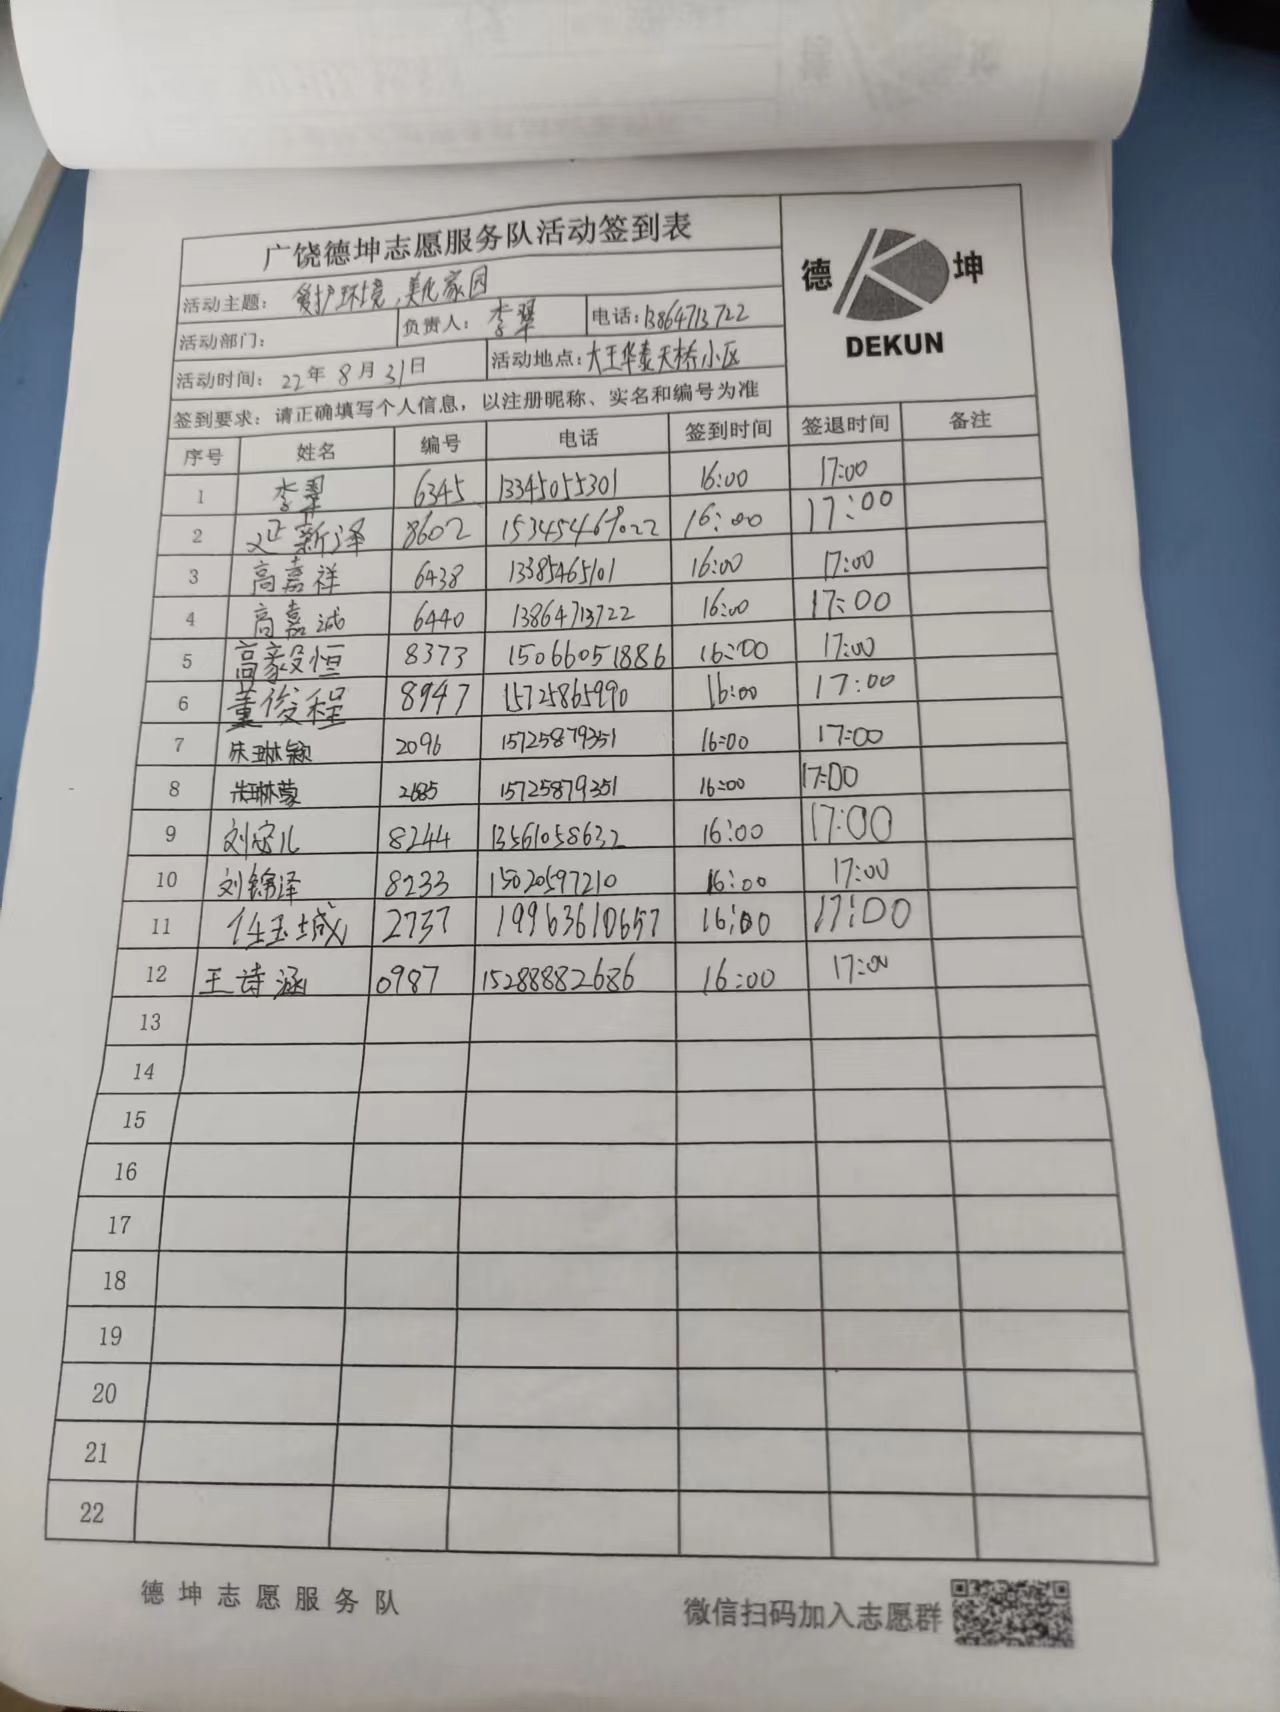 广饶德坤志愿服务队活动签到表
德 坤
DEKUN
活动主题: 爱护环境,美化家园
活动部门: 负责人: 李翠 电话:13864713722
活动时间: 22年8月31日 活动地点:大王华泰天桥小区
签到要求: 请正确填写个人信息,以注册昵称、实名和编号为准
序号 姓名 编号 电话 签到时间 签退时间 备注
1 李翠 6345 13345055301 16:00 17:00
2 延新泽 8602 15345469022 16:00 17:00
3 高嘉祥 6438 13385465101 16:00 17:00
4 高嘉诚 6440 13864713722 16:00 17:00
5 高毅恒 8373 15066051886 16:00 17:00
6 董俊程 8947 15725865990 16:00 17:00
7 朱琳颖 2096 15725879351 16:00 17:00
8 朱琳蒙 15725879351 16:00 17:00
9 8244 13561058632 16:00 17:00
10 刘锦泽 8233 15020597210 16:00 17:00
11 任玉城 2737 19963610657 16:00 17:00
12 王诗涵 0987 15288882686 16:00 17:00
13
14
15
16
17
18
19
20
21
22
德坤志愿服务队 微信扫码加入志愿群